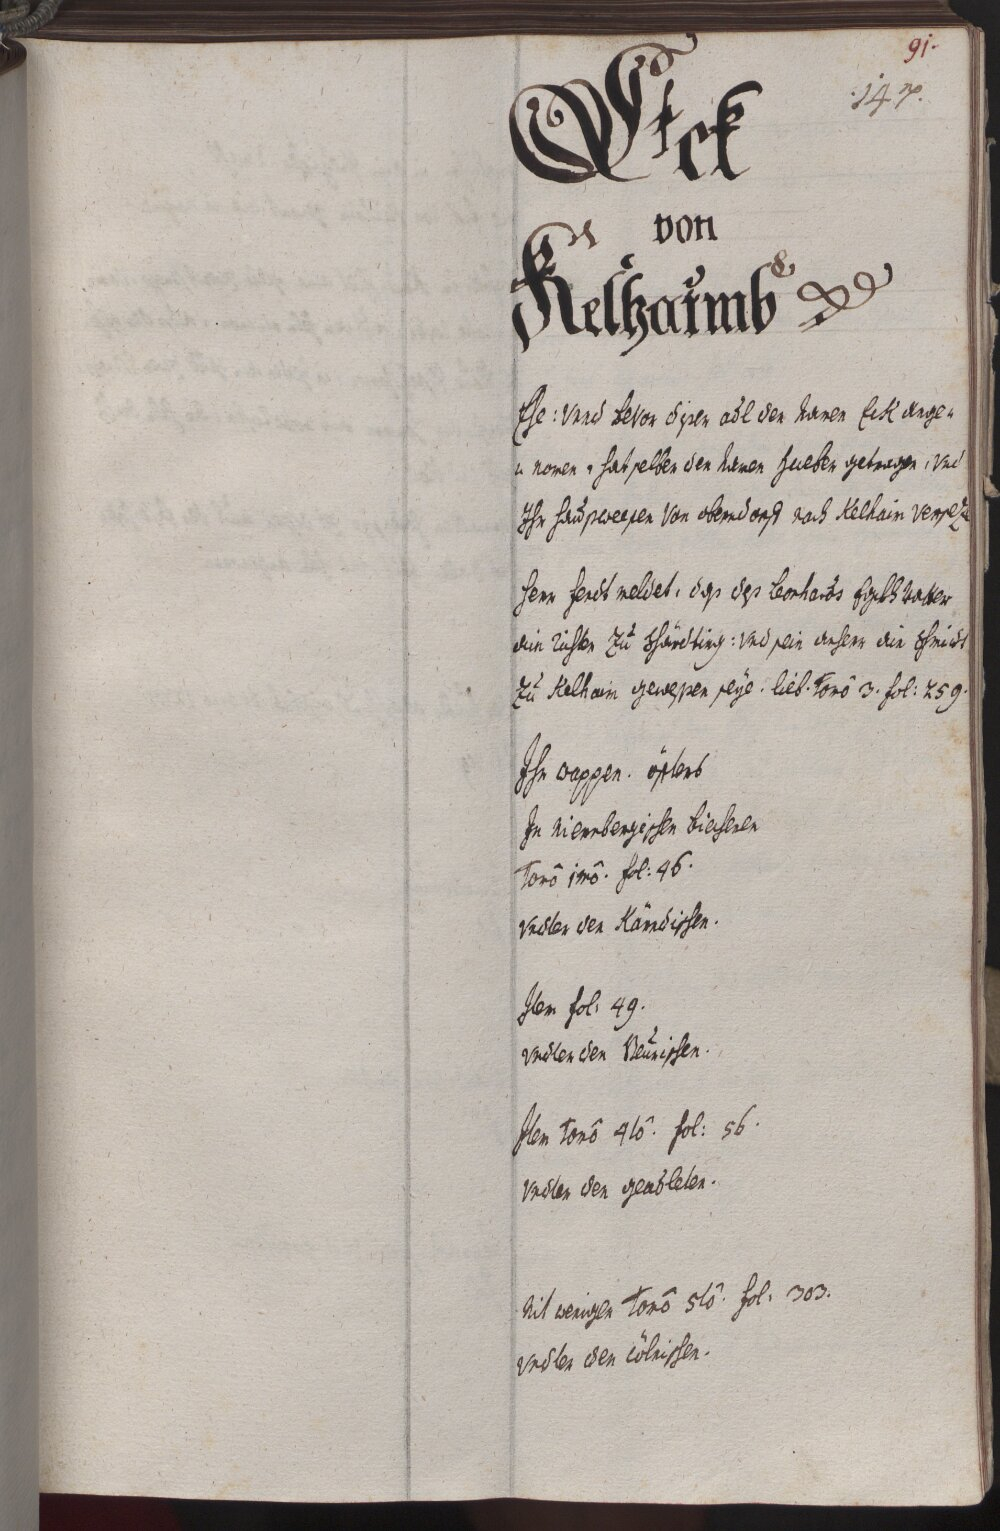 91.
147.
Eck
von
Kelhaimb
Ehe: vnd bevor diser adl den namen Eck ange„
„nomen, hat selber den namen hueber getragen, vnd
Ihr hauswesen von oberndorf nach Kelhaim versetzt
herr ferdt meldet, das des leonhards Egkh vatter
ain richter zu Schärding: vnd sein anherr ain Schmidt
zu Kelhaim gewessen seye. lieb. Tomô 3. fol: 259.
Ihr wappen. öfters
In niernbergischen biecheren
Tomô 1mô. fol: 46.
vndter den Kärndischen.
Item fol: 49.
vndter den Beurischen.
Item Tomô 4tô. fol: 56.
vndter den geadleten.
nit weniger Tomô 5tô. fol: 303.
vndter den Cölnischen.